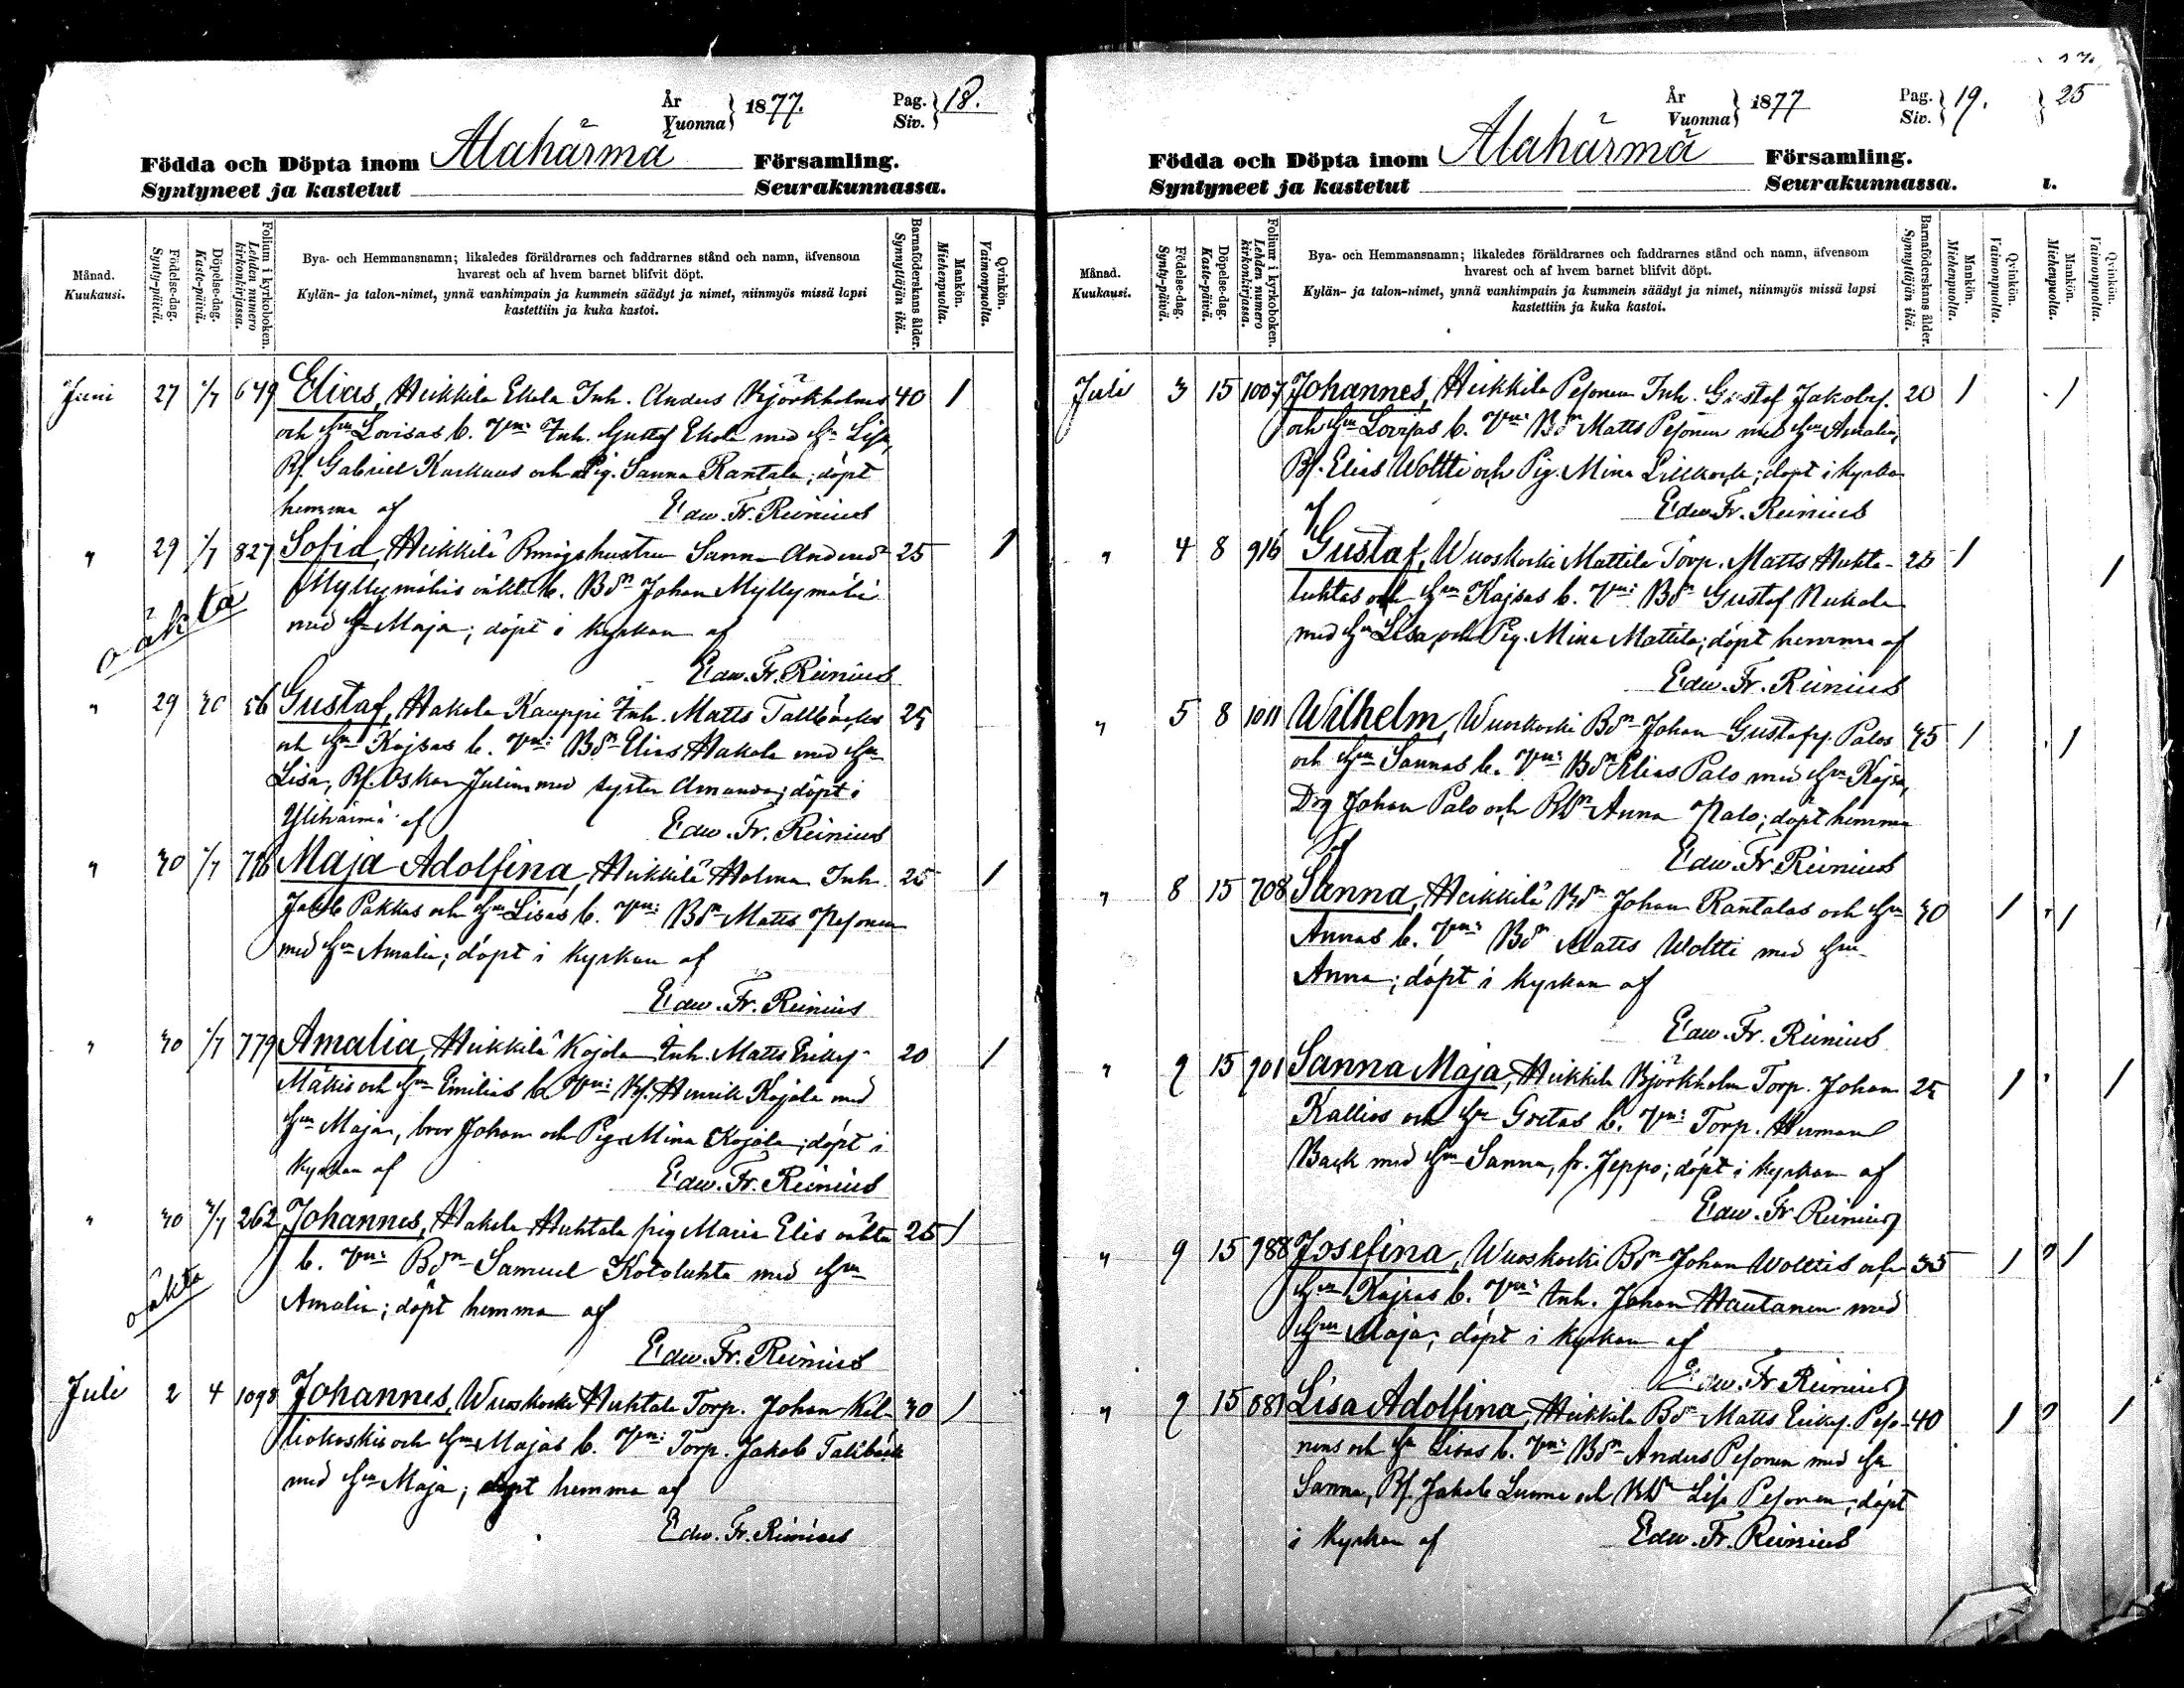 År
Vuonna } 1877. Pag.
Siv. } 18.
Födda och Döpta inom Alahärmä Församling.
Syntyneet ja kastetut Seurakunnassa.
Månad.
Kuukausi.
Födelse-dag.
Synty-päivä.
Döpelse-dag.
Kaste-päivä.
Folium i kyrkoboken.
Lehden numero
kirkonkirjassa.
Bya- och Hemmansnamn; likaledes föräldrarnes och faddrarnes stånd och namn, äfvensom
hvarest och af hvem barnet blifvit döpt.
Kylän- ja talon-nimet, ynnä vanhimpain ja kummein säädyt ja nimet, niinmyös missä lapsi
kastettiin ja kuka kastoi.
Barnaföderskans ålder.
Synnyttäjän ikä.
Mankön.
Miehenpuolta.
Qvinkön.
Vaimonpuolta.
Juni 27 1/7 649 Elias, Heikkilä Ekola Inh. Anders Björkholms 40 1
och Hu Lovisas b. Vni: Inh. Gustaf Ekola med Hu Lisa,
Bf. Gabriel Karhaus och Pig. Sanna Rantala; döpt
hemma af Edw. Fr. Reinius
" 29 1/7 827 Sofia, Heikkilä Sanna Andersdr 25 1
Myllymäkis oäkta b. Bdn Johan Myllymäki
med Hu Maja; döpt i kyrkan af
oäkta
Edw. Fr. Reinius
" 29 30 56 Gustaf, Hakola Kauppi Inh. Matts Tallbacks 25
och Hu Kajsas b. Vni: Bdn Elias Hakola med Hu
Lisa, Bf. Oskar Julin med syster Amanda; döpt i
Ylihärmä af Edw. Fr. Reinius
" 30 1/7 778 Maja Adolfina, Heikkilä Holma Inh. 25 1
Jakob Pakkas och Hu Lisas b. Vni: Bdn Matts Pesonen
med Hu Amalia; döpt i kyrkan af
Edw. Fr. Reinius
" 30 1/7 779 Amalia, Heikkilä Kojola Inh. Matts Eriksf. 20 1
Mäkis och Hu Emilias b. Vni: Bf. Henrik Kojola med
Hu Maja, bror Johan och Pig. Mina Kojola; döpt i
kyrkan af Edw. Fr. Reinius
" 30 2/7 262 Johannes, Hakola Huhtala pig Maria Elis oäkta 25 1
b. Vni: Bdn Samuel Kotoluhta med Hu
Amalia; döpt hemma af
oäkta
Edw. Fr. Reinius
Juli 2 4 1098 Johannes, Wuoskoski Huhtala Torp. Johan Kal- 30 1
liokoskis och Hu Majas b. Vni: Torp. Jakob Tallbäck
med Hu Maja; döpt hemma af
Edw. Fr. Reinius
År
Vuonna } 1877 Pag.
Siv. } 19. } 25
Födda och Döpta inom Alahärmä Församling.
Syntyneet ja kastetut Seurakunnassa.
Månad.
Kuukausi.
Födelse-dag.
Synty-päivä.
Döpelse-dag.
Kaste-päivä.
Folium i kyrkoboken.
Lehden numero
kirkonkirjassa.
Bya- och Hemmansnamn; likaledes föräldrarnes och faddrarnes stånd och namn, äfvensom
hvarest och af hvem barnet blifvit döpt.
Kylän- ja talon-nimet, ynnä vanhimpain ja kummein säädyt ja nimet, niinmyös missä lapsi
kastettiin ja kuka kastoi.
Barnaföderskans ålder.
Synnyttäjän ikä.
Mankön.
Miehenpuolta.
Qvinkön.
Vaimonpuolta.
Mankön.
Miehenpuolta.
Qvinkön.
Vaimonpuolta.
Juli 3 15 1007 Johannes, Heikkilä Pesonen Inh. Gustaf Jakobsf. 20 1 1
och Hu Lovisas b. Vni: Bdn Matts Pesonen med Hu Amalia,
Bf. Elias Woltti och Pig. Mina Lillkock; döpt i kyrkan
af Edw. Fr. Reinius
" 4 8 916 Gustaf, Wuoskoski Mattila Torp. Matts Huhta- 25 1 1
luhtas och Hu Kajsas b. Vni: Bdn Gustaf Nukala
med Hu Lisa, och Pig. Mina Mattila; döpt hemma af
Edw. Fr. Reinius
" 5 8 1011 Wilhelm, Wuoskoski Bdn Johan Gustafsf. Palos 45 1 1
och Hu Sannas b. Vni: Bdn Elias Palo med Hu Kajsa,
Drg Johan Palo och Anna Palo; döpt hemma
af Edw. Fr. Reinius
" 8 15 708 Sanna, Heikkilä Bdn Johan Rantalas och Hu 30 1 1
Annas b. Vni: Bdn Matts Woltti med Hu
Anna; döpt i kyrkan af
Edw. Fr. Reinius
" 9 15 901 Sanna Maja, Heikkilä Björkholm Torp. Johan 25 1 1
Kallios och Hu Gretas b. Vni: Torp. Herman
Back med Hu Sanna, fr. Jeppo; döpt i kyrkan af
Edw. Fr. Reinius
" 9 15 988 Josefina, Wuoskoski Bdn Johan Wolttis och 35 1 1
Hu Kajsas b. Vni: Inh. Johan Hautanen med
Hu Maja; döpt i kyrkan af
Edw. Fr. Reinius
" 9 15 881 Lisa Adolfina, Heikkilä Bdn Matts Eriksf. Peso- 40 1 1
nens och Hu Lisas b. Vni: Bdn Anders Pesonen med Hu
Sanna, Bf. Jakob Luoma och Lisa Pesonen; döpt
i kyrkan af Edw. Fr. Reinius